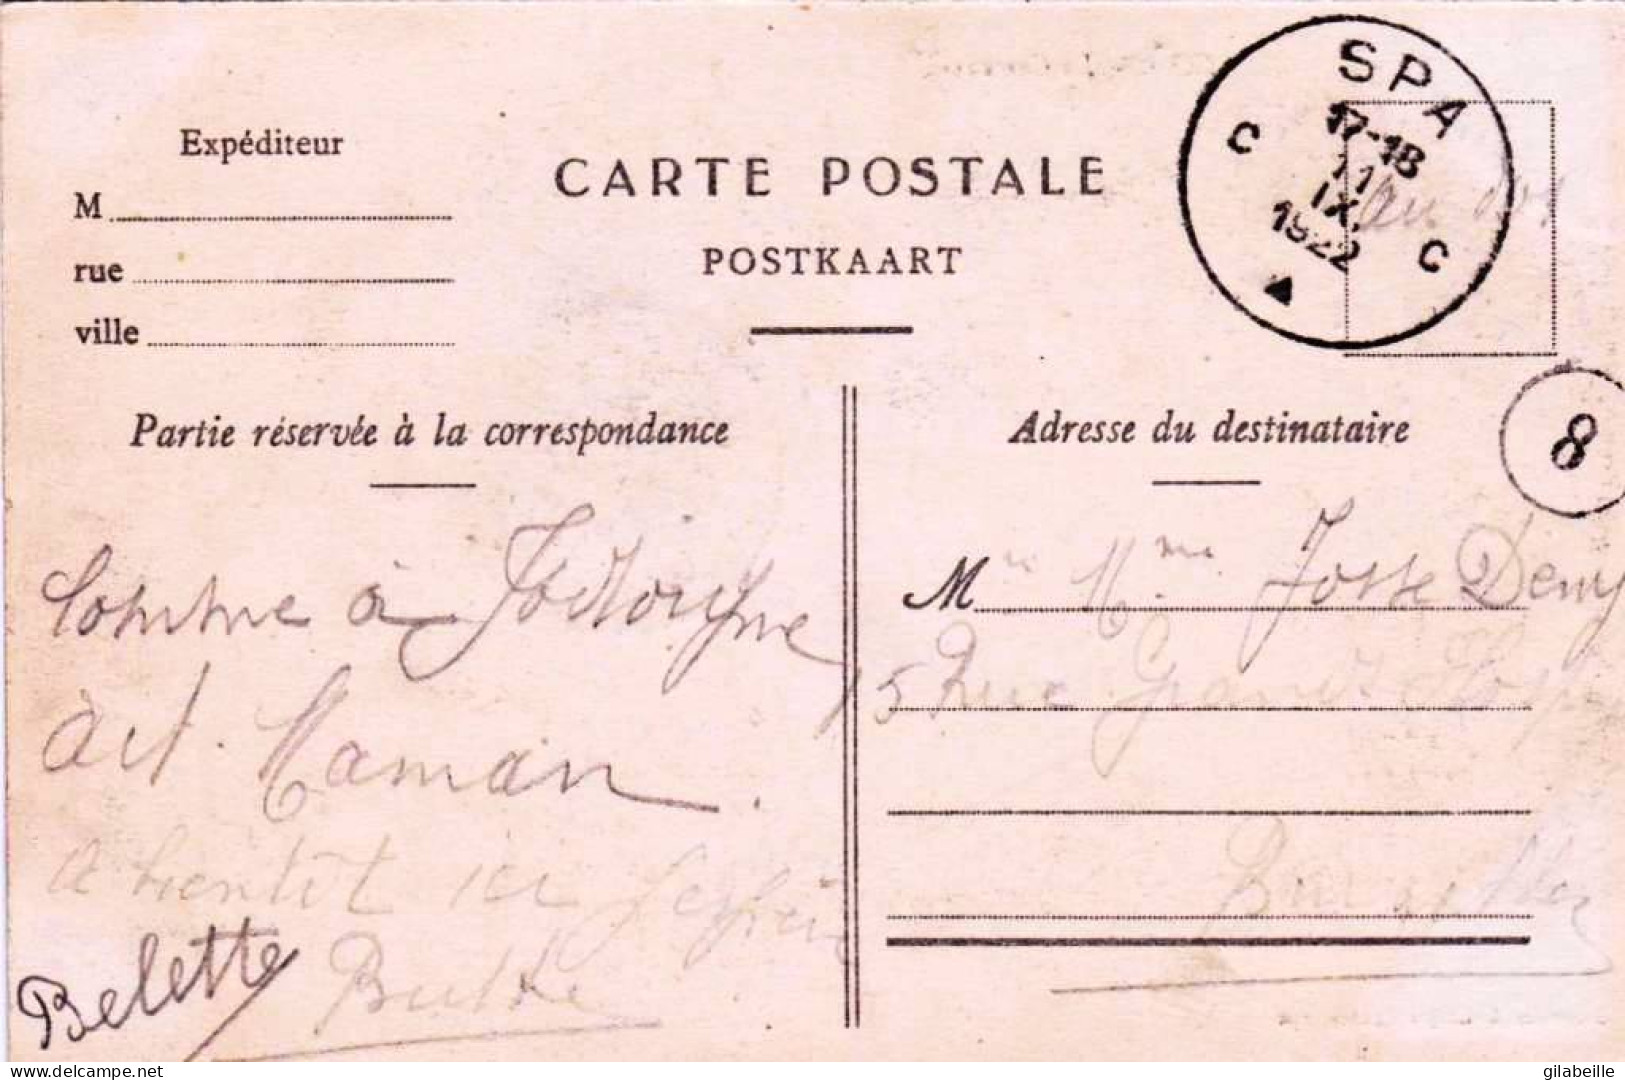 Expéditeur
M
rue
ville
CARTE POSTALE
POSTKAART
SPA
C C
17-18
11
IX
1922
au
8
Partie réservée à la correspondance
Adresse du destinataire
Comme à Jodoigne
dit Maman.
a bientôt ici
Belette
M Mme Josse Deny
15 Rue Grand
Bruxelles
delcampe.net
gilabeille